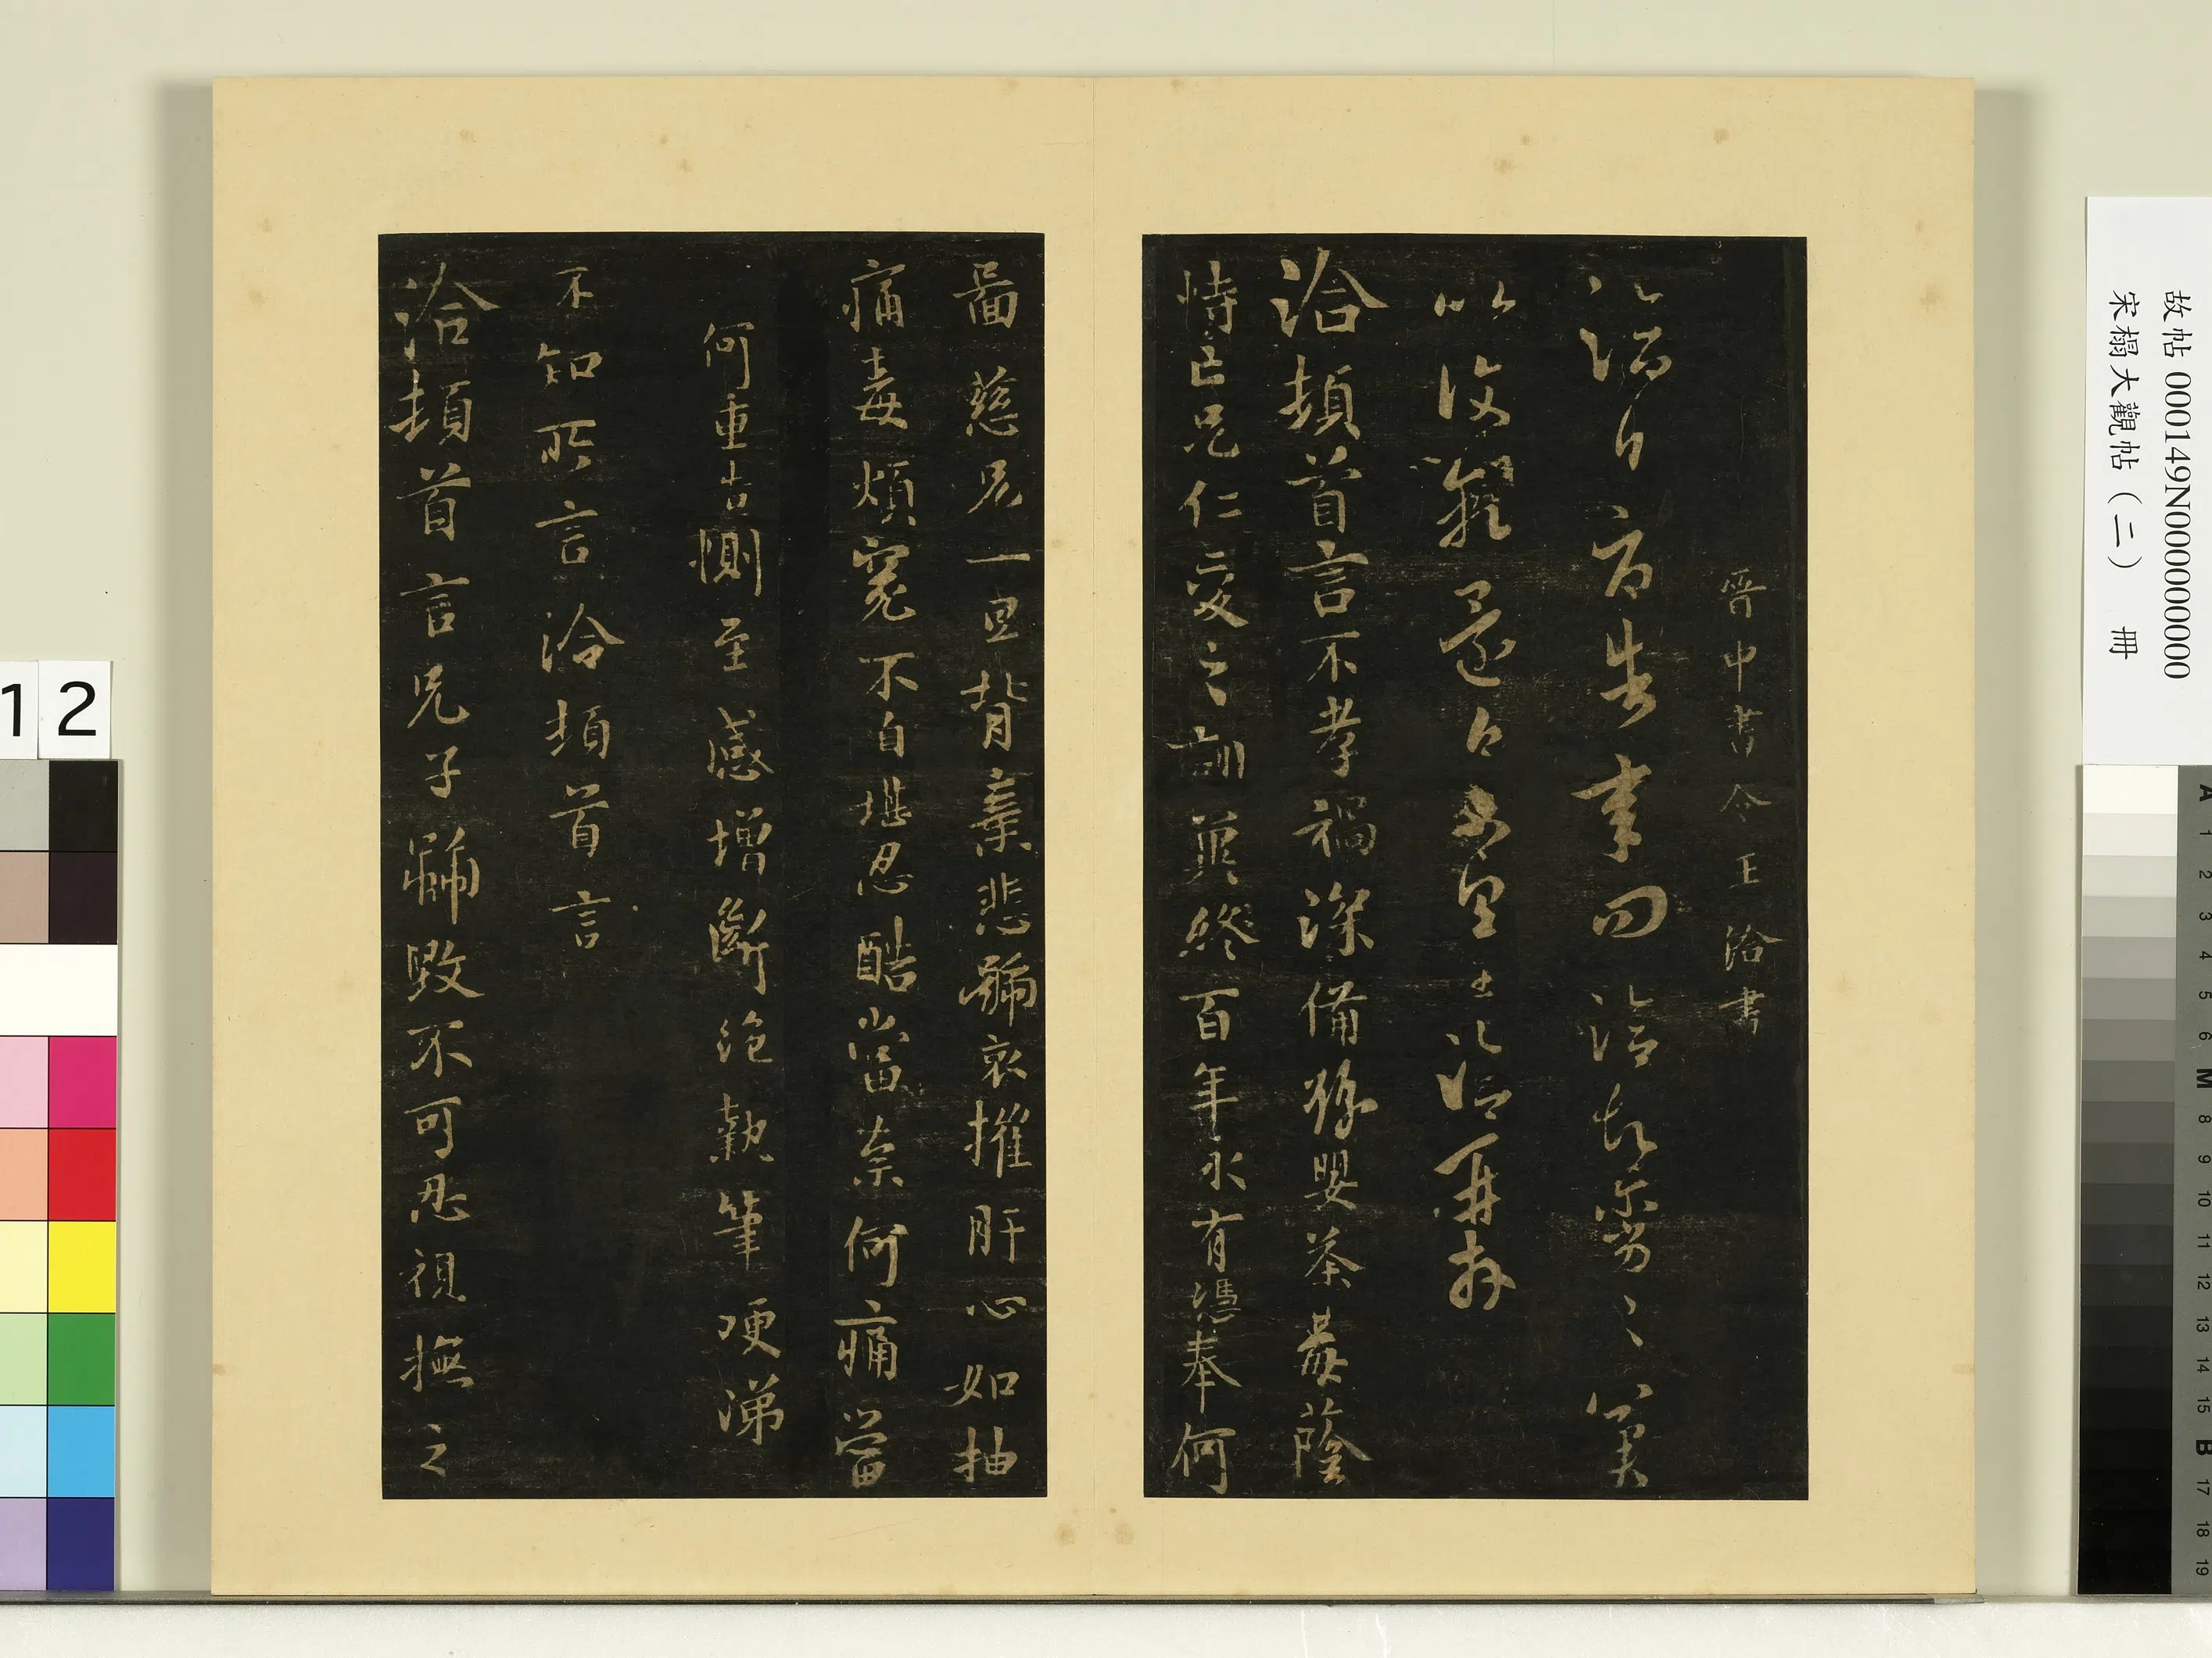 故帖 000149N000000000
宋榻大觀帖（二） 冊
晉中書令王洽書
洽頓首言不孝禍深備豫嬰荼毒蔭
恃亡兄仁愛之訓冀終百年永有憑奉何
圖慈兄一旦背棄悲號哀摧肝心如抽
痛毒煩冤不自堪忍酷當奈何痛當
何重告惻至感增斷絕執筆哽涕
不知所言洽頓首言
洽頓首言兄子號毀不可忍視撫之
12
A 1 2 3 4 5 6 M 8 9 10 11 12 13 14 15 B 17 18 19